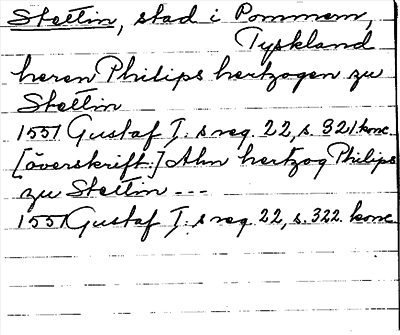 Stettin, stad i Pommern,
Tyskland
heren Philips hertzogen zu
Stettin
1551 Gustaf I. s reg. 22, s. 321 konc.
[överskrift:] Ahn hertzog Philips
zu Stettin ---
1551 Gustaf I. s reg. 22, s. 322. konc.